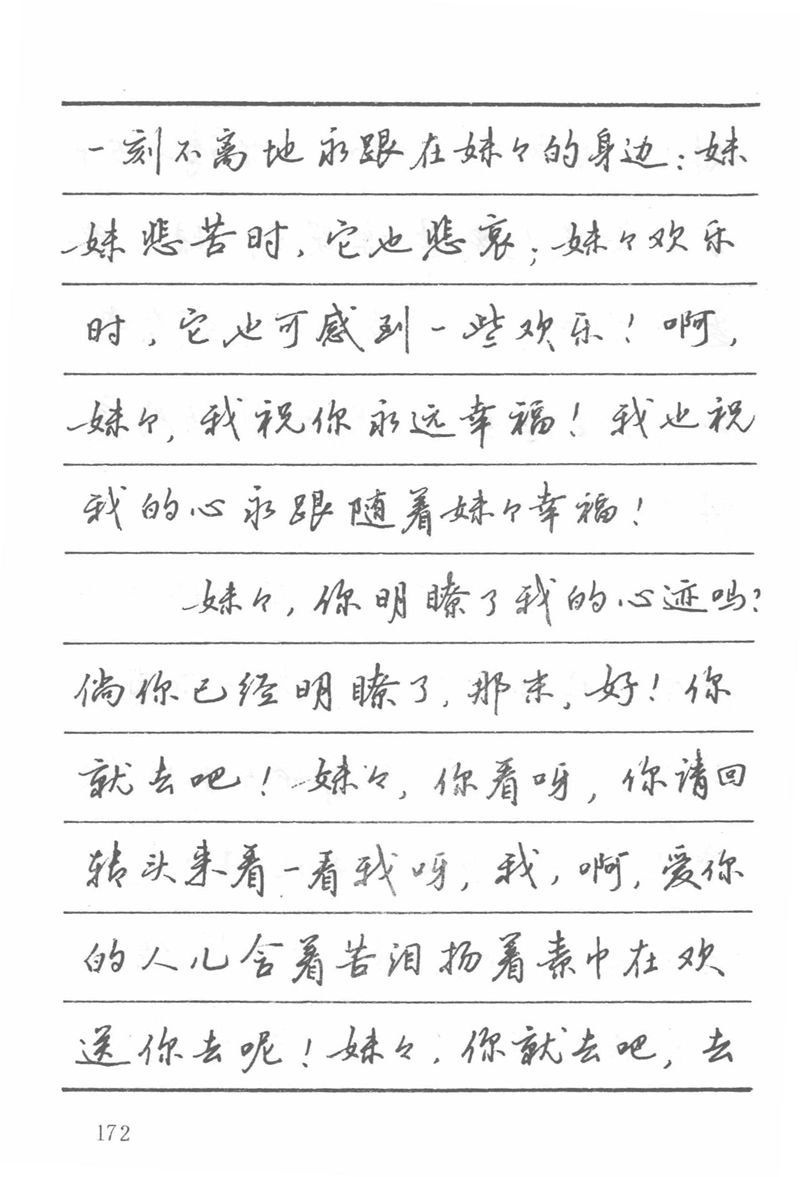 一刻不离地永跟在妹々的身边：妹
妹悲苦时，它也悲哀；妹々欢乐
时，它也可感到一些欢乐！啊，
妹々，我祝你永远幸福！我也祝
我的心永跟随着妹々幸福！
妹々，你明瞭了我的心迹吗？
倘你已经明瞭了，那末，好！你
就去吧！妹々，你看呀，你请回
转头来看一看我呀，我，啊，爱你
的人儿含着苦泪扬着素巾在欢
送你去呢！妹々，你就去吧，去
172